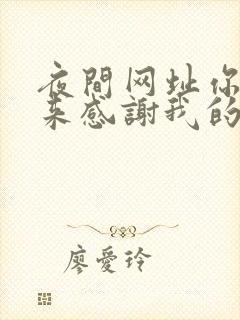 夜間网址你
来感謝我的
廖愛玲